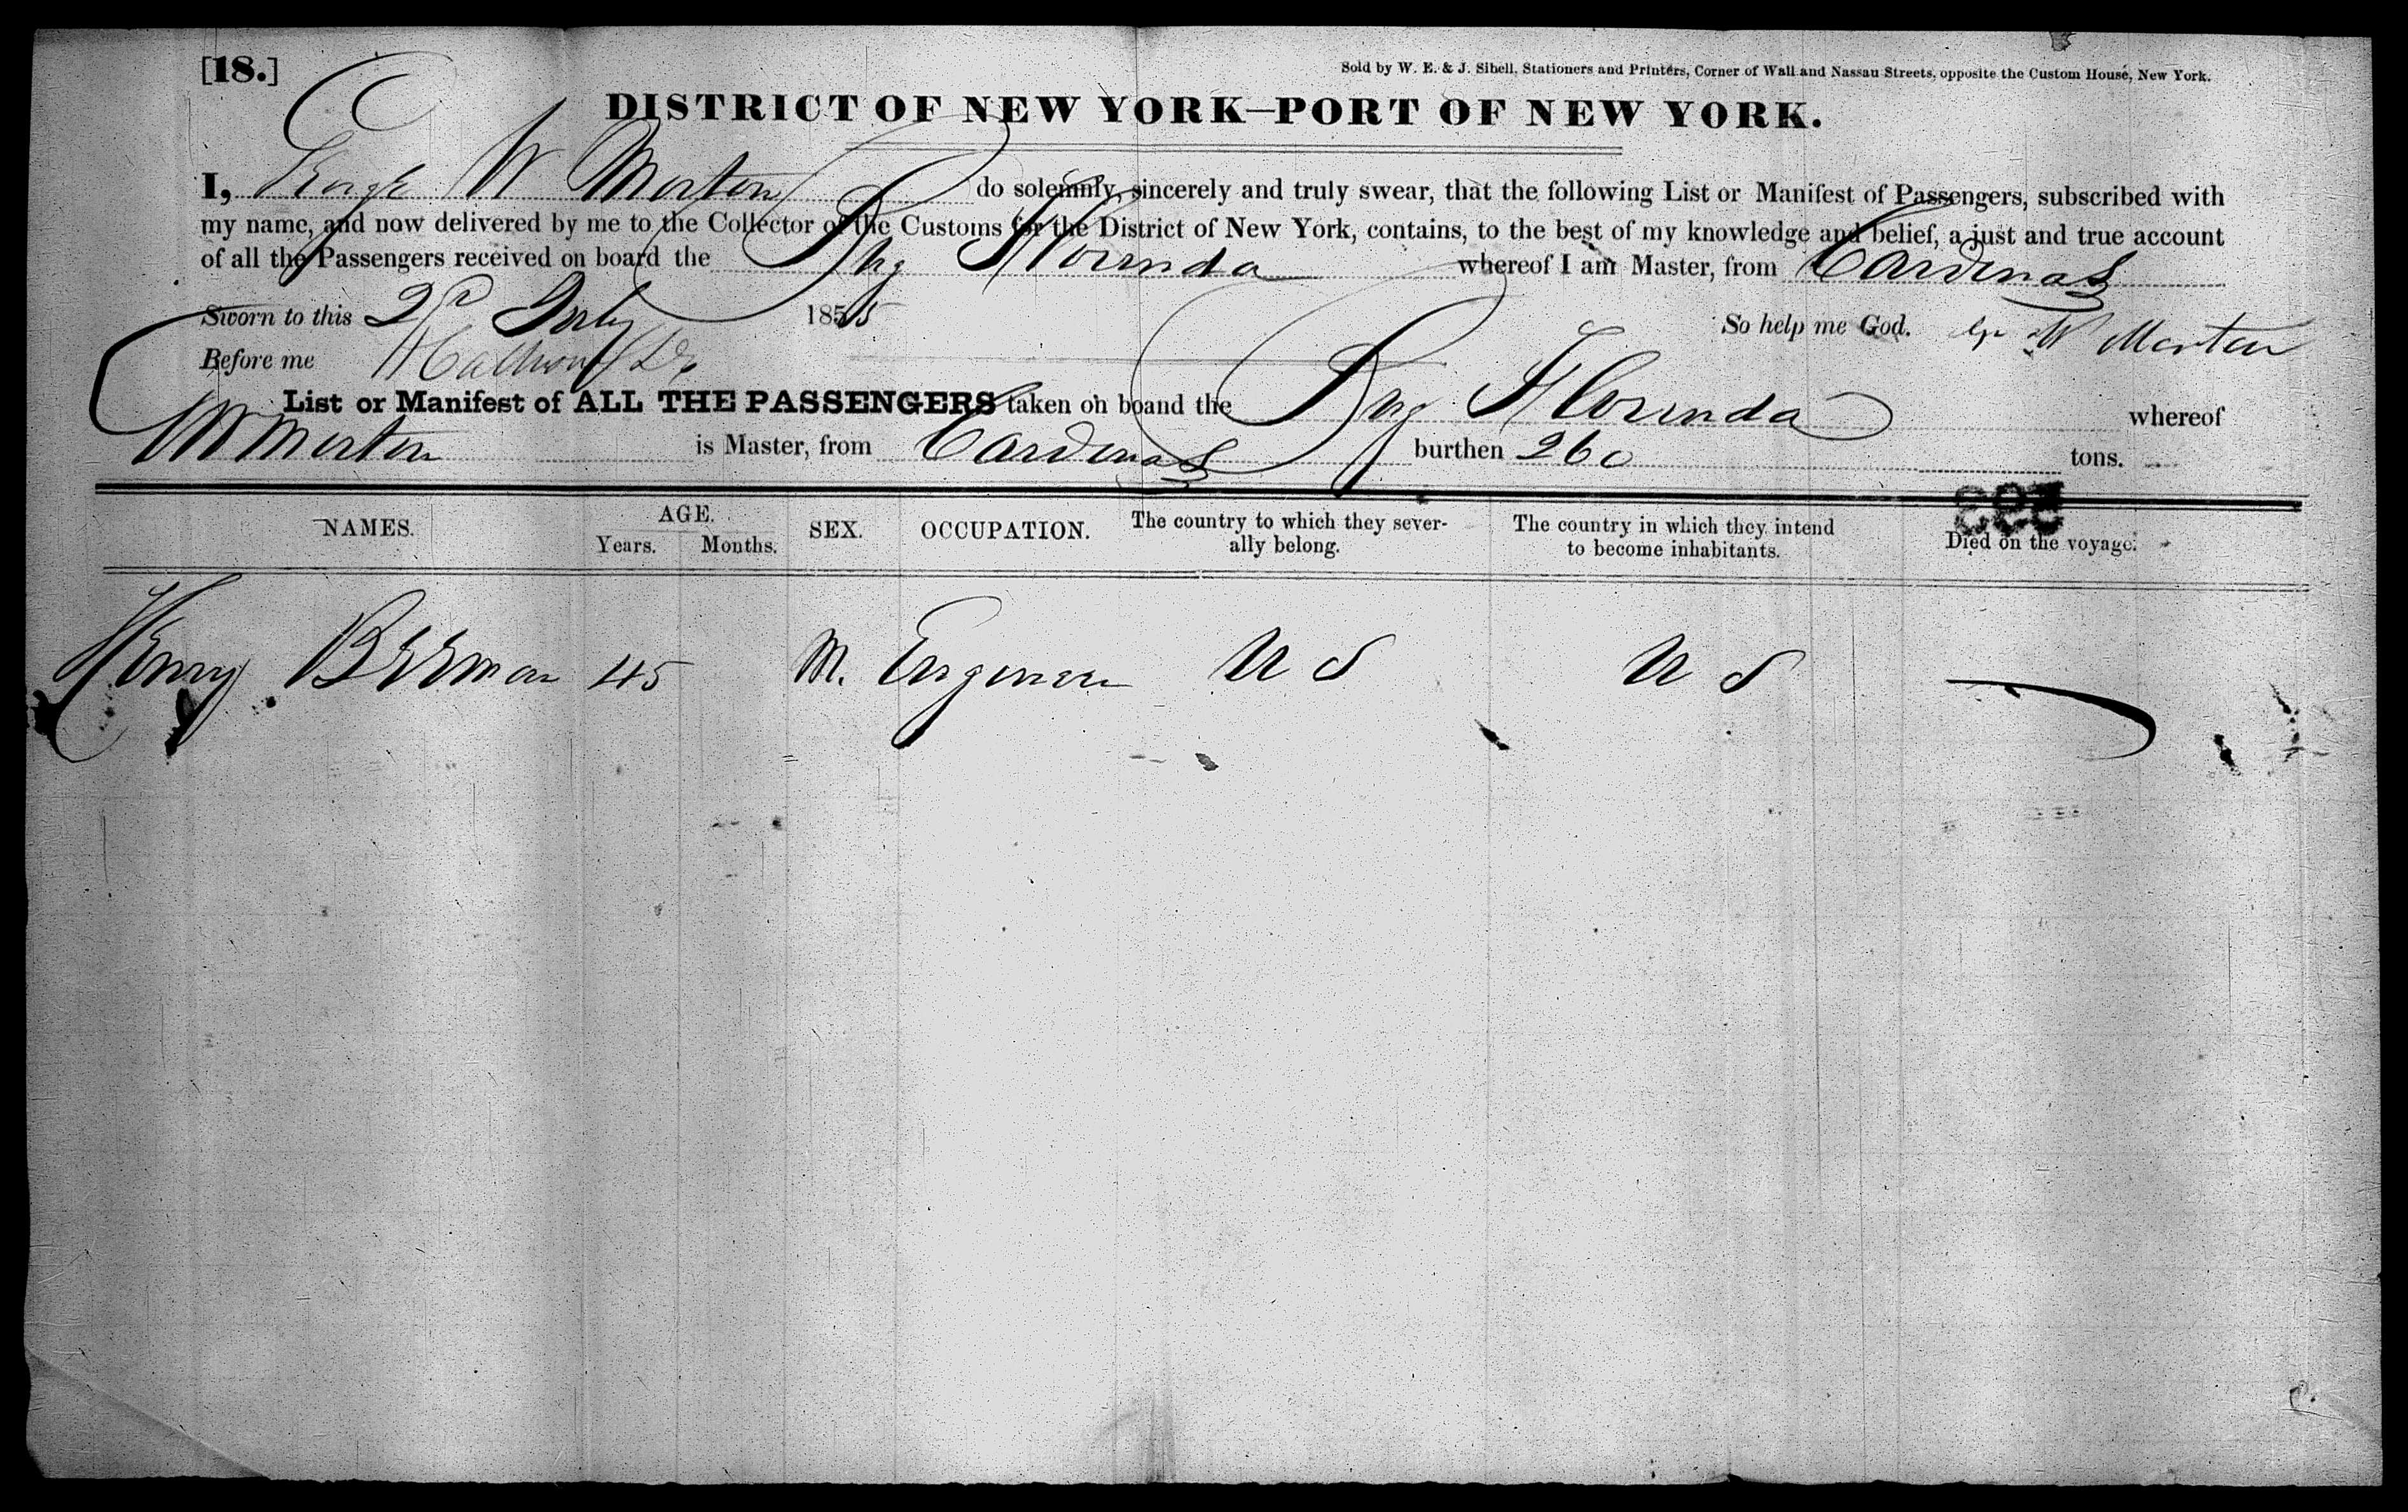 [18.]
Sold by W. E. & J. Sibell, Stationers and Printers, Corner of Wall and Nassau Streets, opposite the Custom House, New York.
DISTRICT OF NEW YORK—PORT OF NEW YORK.
I, George W Morton do solemnly, sincerely and truly swear, that the following List or Manifest of Passengers, subscribed with
my name, and now delivered by me to the Collector of the Customs for the District of New York, contains, to the best of my knowledge and belief, a just and true account
of all the Passengers received on board the Brig Florinda whereof I am Master, from Cardenas
Sworn to this 2d July 1855 So help me God. Geo W Morton
Before me
List or Manifest of ALL THE PASSENGERS taken on board the Brig Florinda whereof
GW Morton is Master, from Cardenas burthen 260 tons.
593
NAMES. AGE. Years. Months. SEX. OCCUPATION. The country to which they severally belong. The country in which they intend to become inhabitants. Died on the voyage.
Henry Beeman 45 M. Engineer U S U S